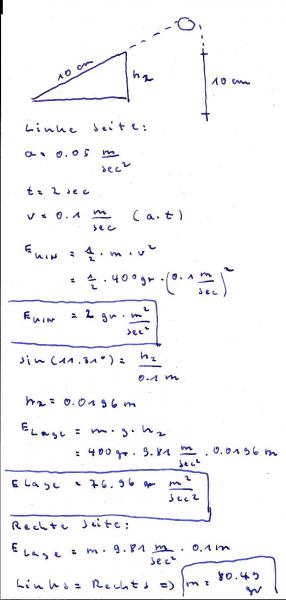 10 cm
h₂
10 cm
Linke Seite:
a = 0.05 m/sec²
t = 2 sec
v = 0.1 m/sec (a.t)
E_KIN = 1/2 · m · v²
= 1/2 · 400gr · (0.1 m/sec)²
E_KIN = 2 gr · m²/sec²
sin(11.31°) = h₂/0.1m
h₂ = 0.0196 m
E_Lage = m · g · h₂
= 400gr · 9.81 m/sec² · 0.0196 m
E_Lage = 76.96 gr m²/sec²
Rechte Seite:
E_Lage = m · 9.81 m/sec² · 0.1m
Links = Rechts => m = 80.49 gr